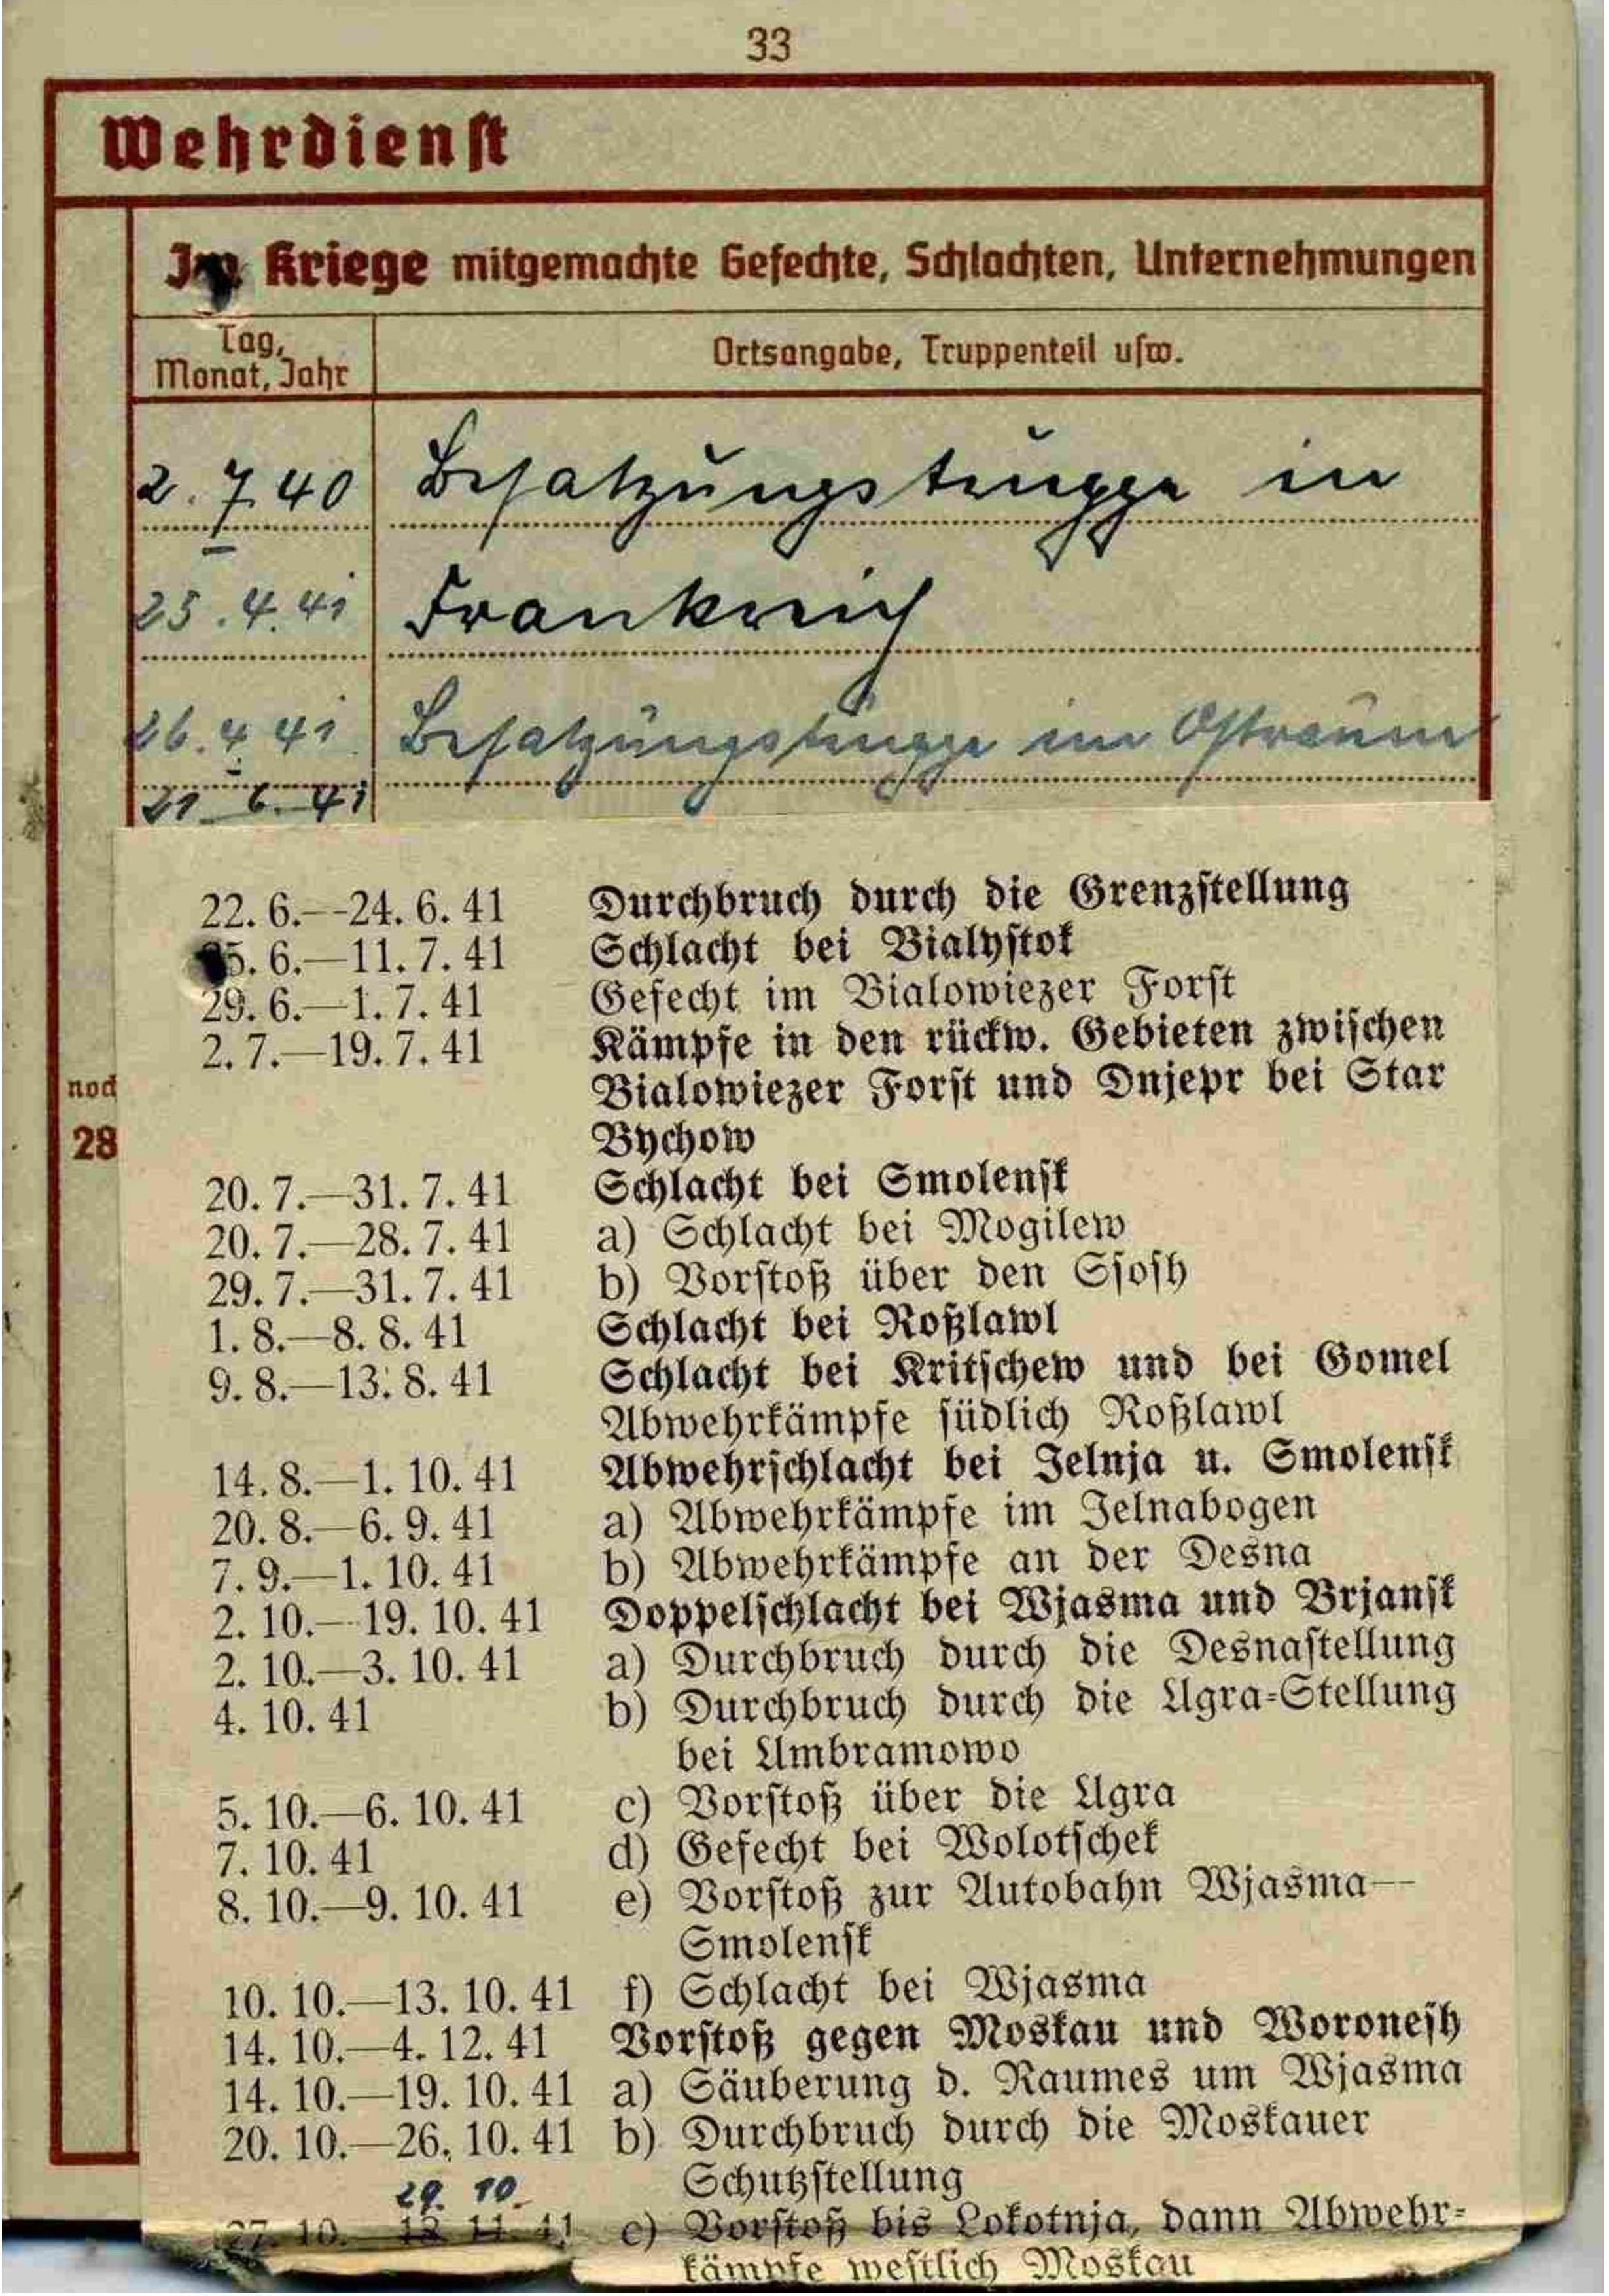 33
Wehrdienst
Im Kriege mitgemachte Gefechte, Schlachten, Unternehmungen
Tag,
Monat, Jahr
Ortsangabe, Truppenteil usw.
2. 7. 40 Besatzungstruppe in
25. 4. 41 Frankreich
26. 4. 41 Besatzungstruppe im Ostraum
21. 6. 41
22. 6.—24. 6. 41 Durchbruch durch die Grenzstellung
25. 6.—11. 7. 41 Schlacht bei Bialystok
29. 6.—1. 7. 41 Gefecht im Bialowiezer Forst
2. 7.—19. 7. 41 Kämpfe in den rückw. Gebieten zwischen
noch
Bialowiezer Forst und Dnjepr bei Star
28
Bychow
20. 7.—31. 7. 41 Schlacht bei Smolensk
20. 7.—28. 7. 41 a) Schlacht bei Mogilew
29. 7.—31. 7. 41 b) Vorstoß über den Ssosh
1. 8.—8. 8. 41 Schlacht bei Roßlawl
9. 8.—13. 8. 41 Schlacht bei Kritschew und bei Gomel
Abwehrkämpfe südlich Roßlawl
14. 8.—1. 10. 41 Abwehrschlacht bei Jelnja u. Smolensk
20. 8.—6. 9. 41 a) Abwehrkämpfe im Jelnabogen
7. 9.—1. 10. 41 b) Abwehrkämpfe an der Desna
2. 10.—19. 10. 41 Doppelschlacht bei Wjasma und Brjansk
2. 10.—3. 10. 41 a) Durchbruch durch die Desnastellung
4. 10. 41 b) Durchbruch durch die Ugra-Stellung
bei Umbramowo
5. 10.—6. 10. 41 c) Vorstoß über die Ugra
7. 10. 41 d) Gefecht bei Wolotschek
8. 10.—9. 10. 41 e) Vorstoß zur Autobahn Wjasma—
Smolensk
10. 10.—13. 10. 41 f) Schlacht bei Wjasma
14. 10.—4. 12. 41 Vorstoß gegen Moskau und Woronesh
14. 10.—19. 10. 41 a) Säuberung d. Raumes um Wjasma
20. 10.—26. 10. 41 b) Durchbruch durch die Moskauer
Schutzstellung
29. 10.
27. 10.—18. 11. 41 c) Vorstoß bis Lokotnja, dann Abwehr-
kämpfe westlich Moskau